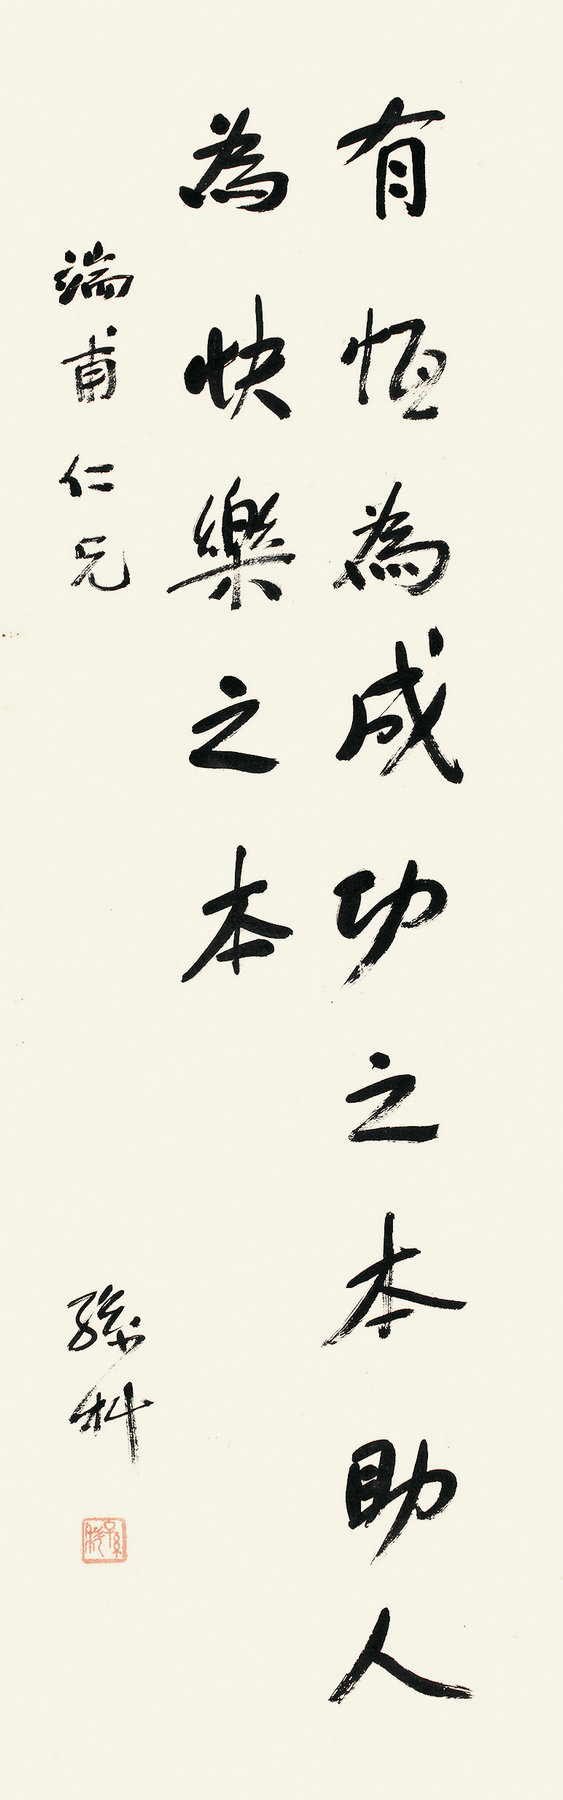 有恆為成功之本助人
為快樂之本
端甫仁兄
孫科
孫科